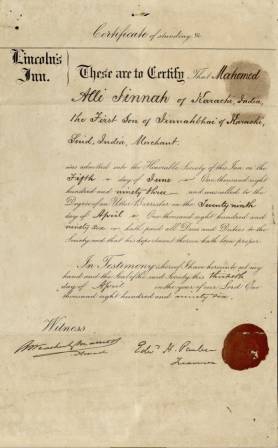 Certificate of standing &c
Lincoln's
Inn.
These are to Certify That Mahomed
Alli Jinnah of Karachi, India,
the First Son of Jinnahbhai of Karachi,
Scind, India, Merchant.
was admitted into the Honorable Society of this Inn on the
Fifth day of June One thousand eight
hundred and ninety three and was called to the
Degree of an Utter Barrister on the Twenty ninth
day of April One thousand eight hundred and
ninety six hath paid all Dues and Duties to the
Society and that his deportment therein hath been proper.
In Testimony whereof I have hereunto set my
hand and the Seal of the said Society this thirtieth
day of April in the year of our Lord One
thousand eight hundred and ninety six.
Witness
Edw. H.
Treasurer